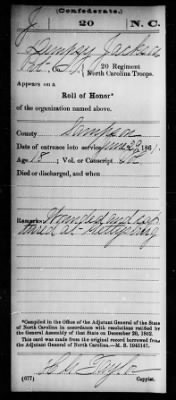 (Confederate.)
J 20 N. C.
Dempsy Jackson
20 Regiment
North Carolina Troops.
Appears on a
Roll of Honor*
of the organization named above.
County Sampson
Date of entrance into service June 186
Age 18; Vol. or Conscript Vol
Died or discharged, and when
Remarks: Wounded and cap
tured at Gettysburg
*Compiled in the Office of the Adjutant General of the State
of North Carolina in accordance with resolutions ratified by
the General Assembly of that State on December 20, 1862.
This card was made from the original record borrowed from
the Adjutant General of North Carolina.—M. S.
(677) Copyist.